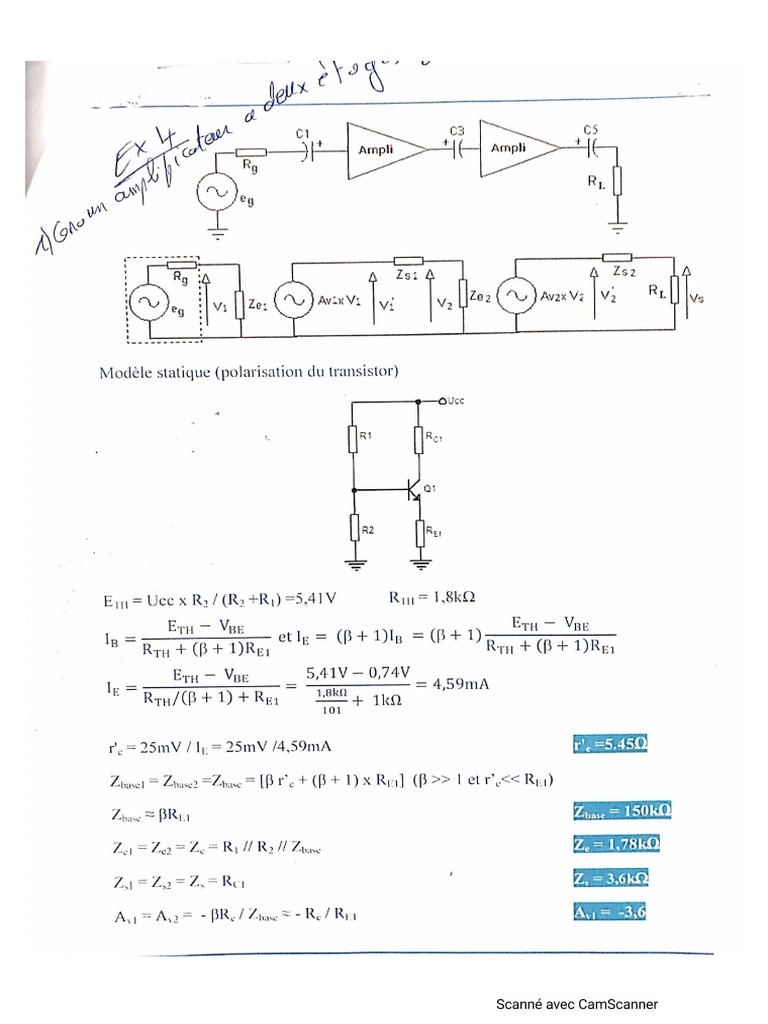 Ex 4
1) Gro un amplificateur a deux étages
C1 C3 C5
Ampli Ampli
Rg
RL
eg
Zs1 Zs2
Rg
eg V1 Ze1 Av1x V1 V1' V2 Ze2 Av2x V2 V2' RL Vs
Modèle statique (polarisation du transistor)
Ucc
R1 RC1
Q1
R2 RE1
ETH = Ucc x R2 / (R2 +R1) =5,41V RTH = 1,8kΩ
IB = (ETH − VBE) / (RTH + (β + 1)RE1) et IE = (β + 1)IB = (β + 1) (ETH − VBE) / (RTH + (β + 1)RE1)
IE = (ETH − VBE) / (RTH/(β + 1) + RE1) = (5,41V − 0,74V) / (1,8kΩ/101 + 1kΩ) = 4,59mA
r'e = 25mV / IE = 25mV /4,59mA r'e =5.45Ω
Zbase1 = Zbase2 =Zbase = [β r'e + (β + 1) x RE1] (β >> 1 et r'e<< RE1)
Zbase ≈ βRE1 Zbase = 150kΩ
Ze1 = Ze2 = Ze = R1 // R2 // Zbase Ze = 1,78kΩ
Zs1 = Zs2 = Zs = RC1 Zs = 3,6kΩ
Av1 = Av2 = - βRc / Zbase ≈ - Rc / RE1 Av1 = -3,6
Scanné avec CamScanner